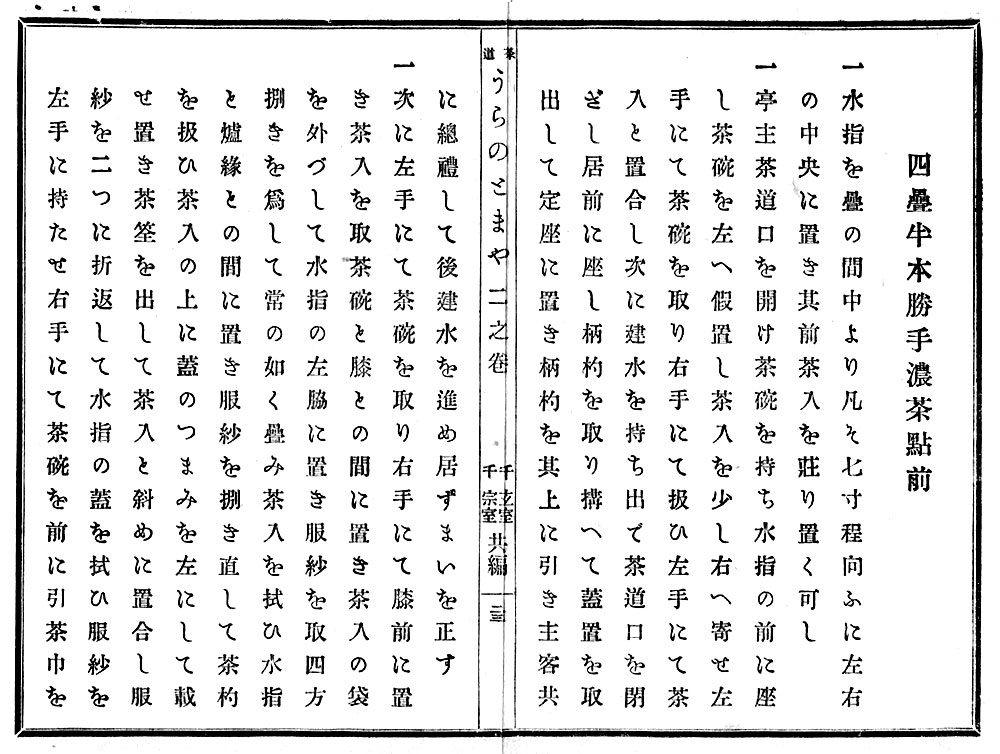 四疊半本勝手濃茶點前
一水指を疊の間中より凡そ七寸程向ふに左右
の中央に置き其前茶入を莊り置く可し
一亭主茶道口を開け茶碗を持ち水指の前に座
し茶碗を左へ假置し茶入を少し右へ寄せ左
手にて茶碗を取り右手にて扱ひ左手にて茶
入と置合し次に建水を持ち出で茶道口を閉
ざし居前に座し柄杓を取り搆へて蓋置を取
出して定座に置き柄杓を其上に引き主客共
茶道
うらのとまや 二之卷
千玄室
千宗室
共編
二三
に總禮して後建水を進め居ずまいを正す
一次に左手にて茶碗を取り右手にて膝前に置
き茶入を取茶碗と膝との間に置き茶入の袋
を外づして水指の左脇に置き服紗を取四方
捌きを爲して常の如く疊み茶入を拭ひ水指
と爐緣との間に置き服紗を捌き直して茶杓
を扱ひ茶入の上に蓋のつまみを左にして載
せ置き茶筌を出して茶入と斜めに置合し服
紗を二つに折返して水指の蓋を拭ひ服紗を
左手に持たせ右手にて茶碗を前に引茶巾を